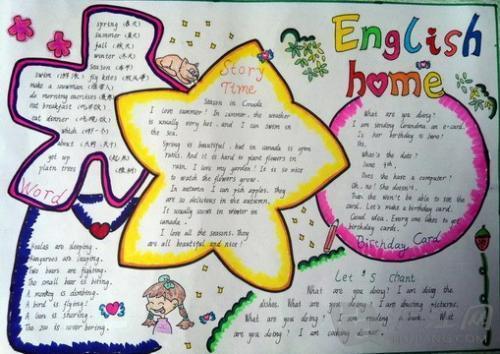 English
home
spring (春天)
summer (夏天)
fall (秋天)
winter (冬天)
season (季节)
swim fly kites
make a snowman
do morning exercises
eat breakfast
eat dinner
which
about
get up
plant trees
Word
Story
Time
Season in Canada
I love summer! In summer, the weather
is usually very hot. and I can swim in
the sea.
Spring is beautiful, but in canada is often
rains. And it is hard to plant flowers in
rain. I love my garden! It is so nice
to watch the flowers grow.
In autumn I can pick apples. they
are so delicious in the autumn.
It usually snows in winter in
canada.
I love all the seasons. They
are all beautiful and nice!
What are you doing?
I am sending Grandma an e-card.
Is her birthday is June?
Yes.
What's the date?
June
Does she have a computer?
Oh, no! She doesn't.
Then she won't be able to see the
card. Let's make a birthday card.
Good idea. Every one likes to get
birthday cards.
Birthday Card
Koalas are sleeping.
Kangaroos are jumping.
Two bears are fighting.
The small bear is biting.
A monkey is climbing.
A bird is flying!
A lion is sharing.
The zoo is never boring.
Let's chant
What are you doing? I am doing the
dishes. What are you doing? I am drawing pictures.
What are you doing? I am reading a book. What
are you doing? I am cooking dinner.